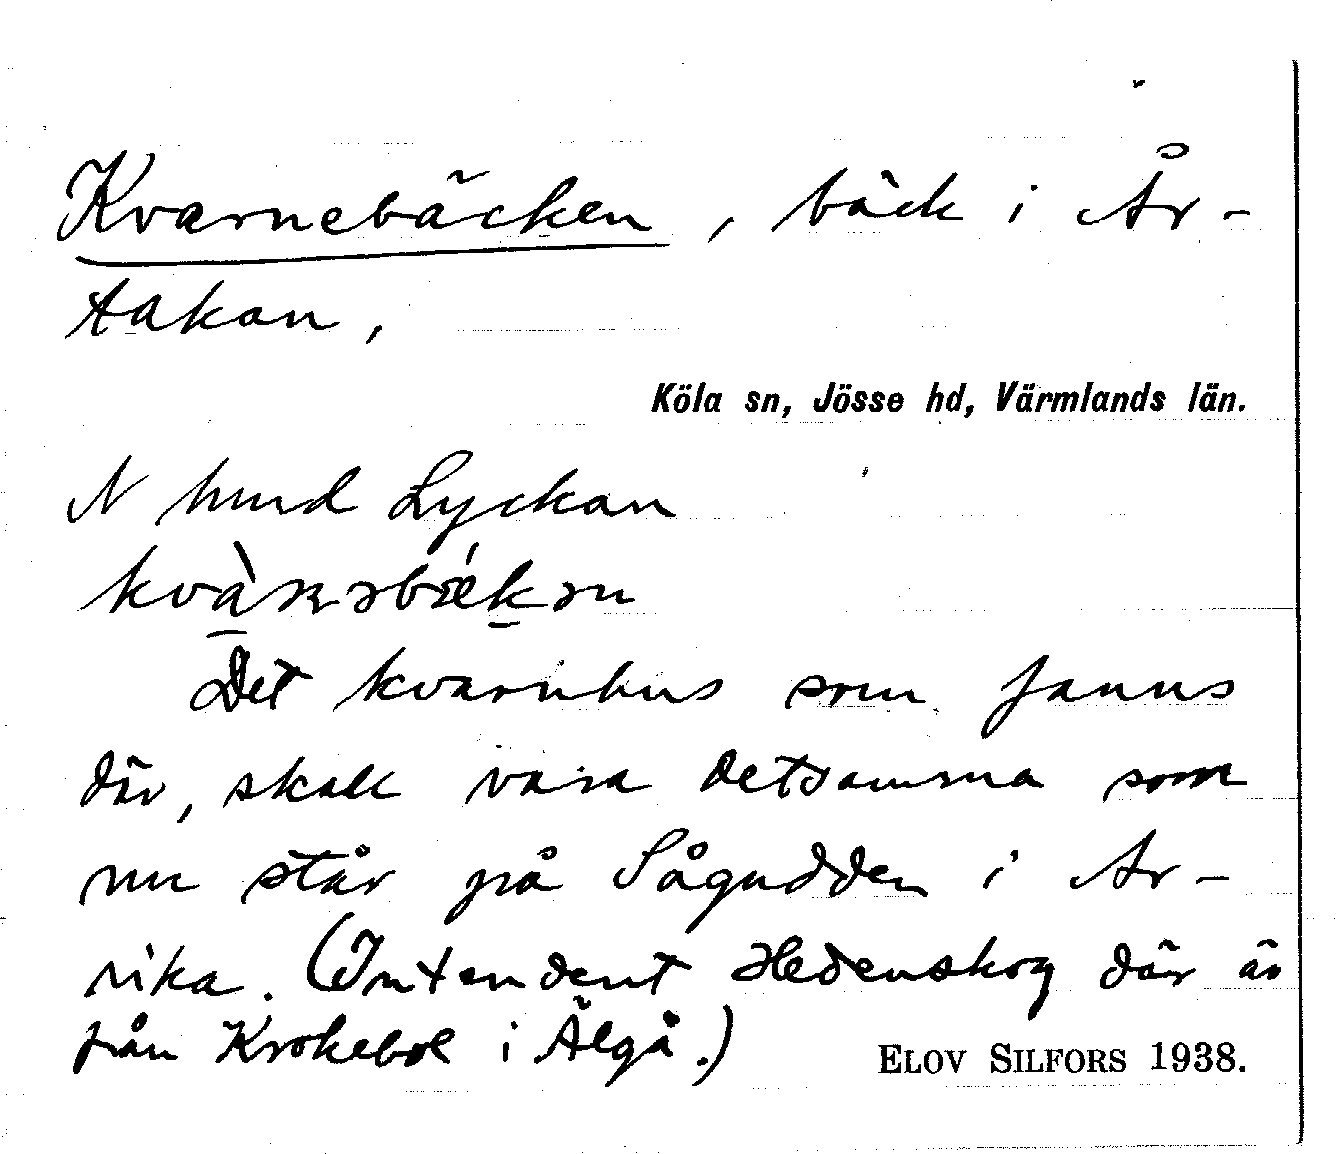 Kvarnebäcken, bäck i År-
takan,
Köla sn, Jösse hd, Värmlands län.
N hmd Lyckan
kvàɳəbækən
Det kvarnhus som fanns
där, skall vara detsamma som
nu står på Sågudden i Ar-
vika. (Intendent Hedenskog där är
från Krokebol i Älgå.)
ELOV SILFORS 1938.